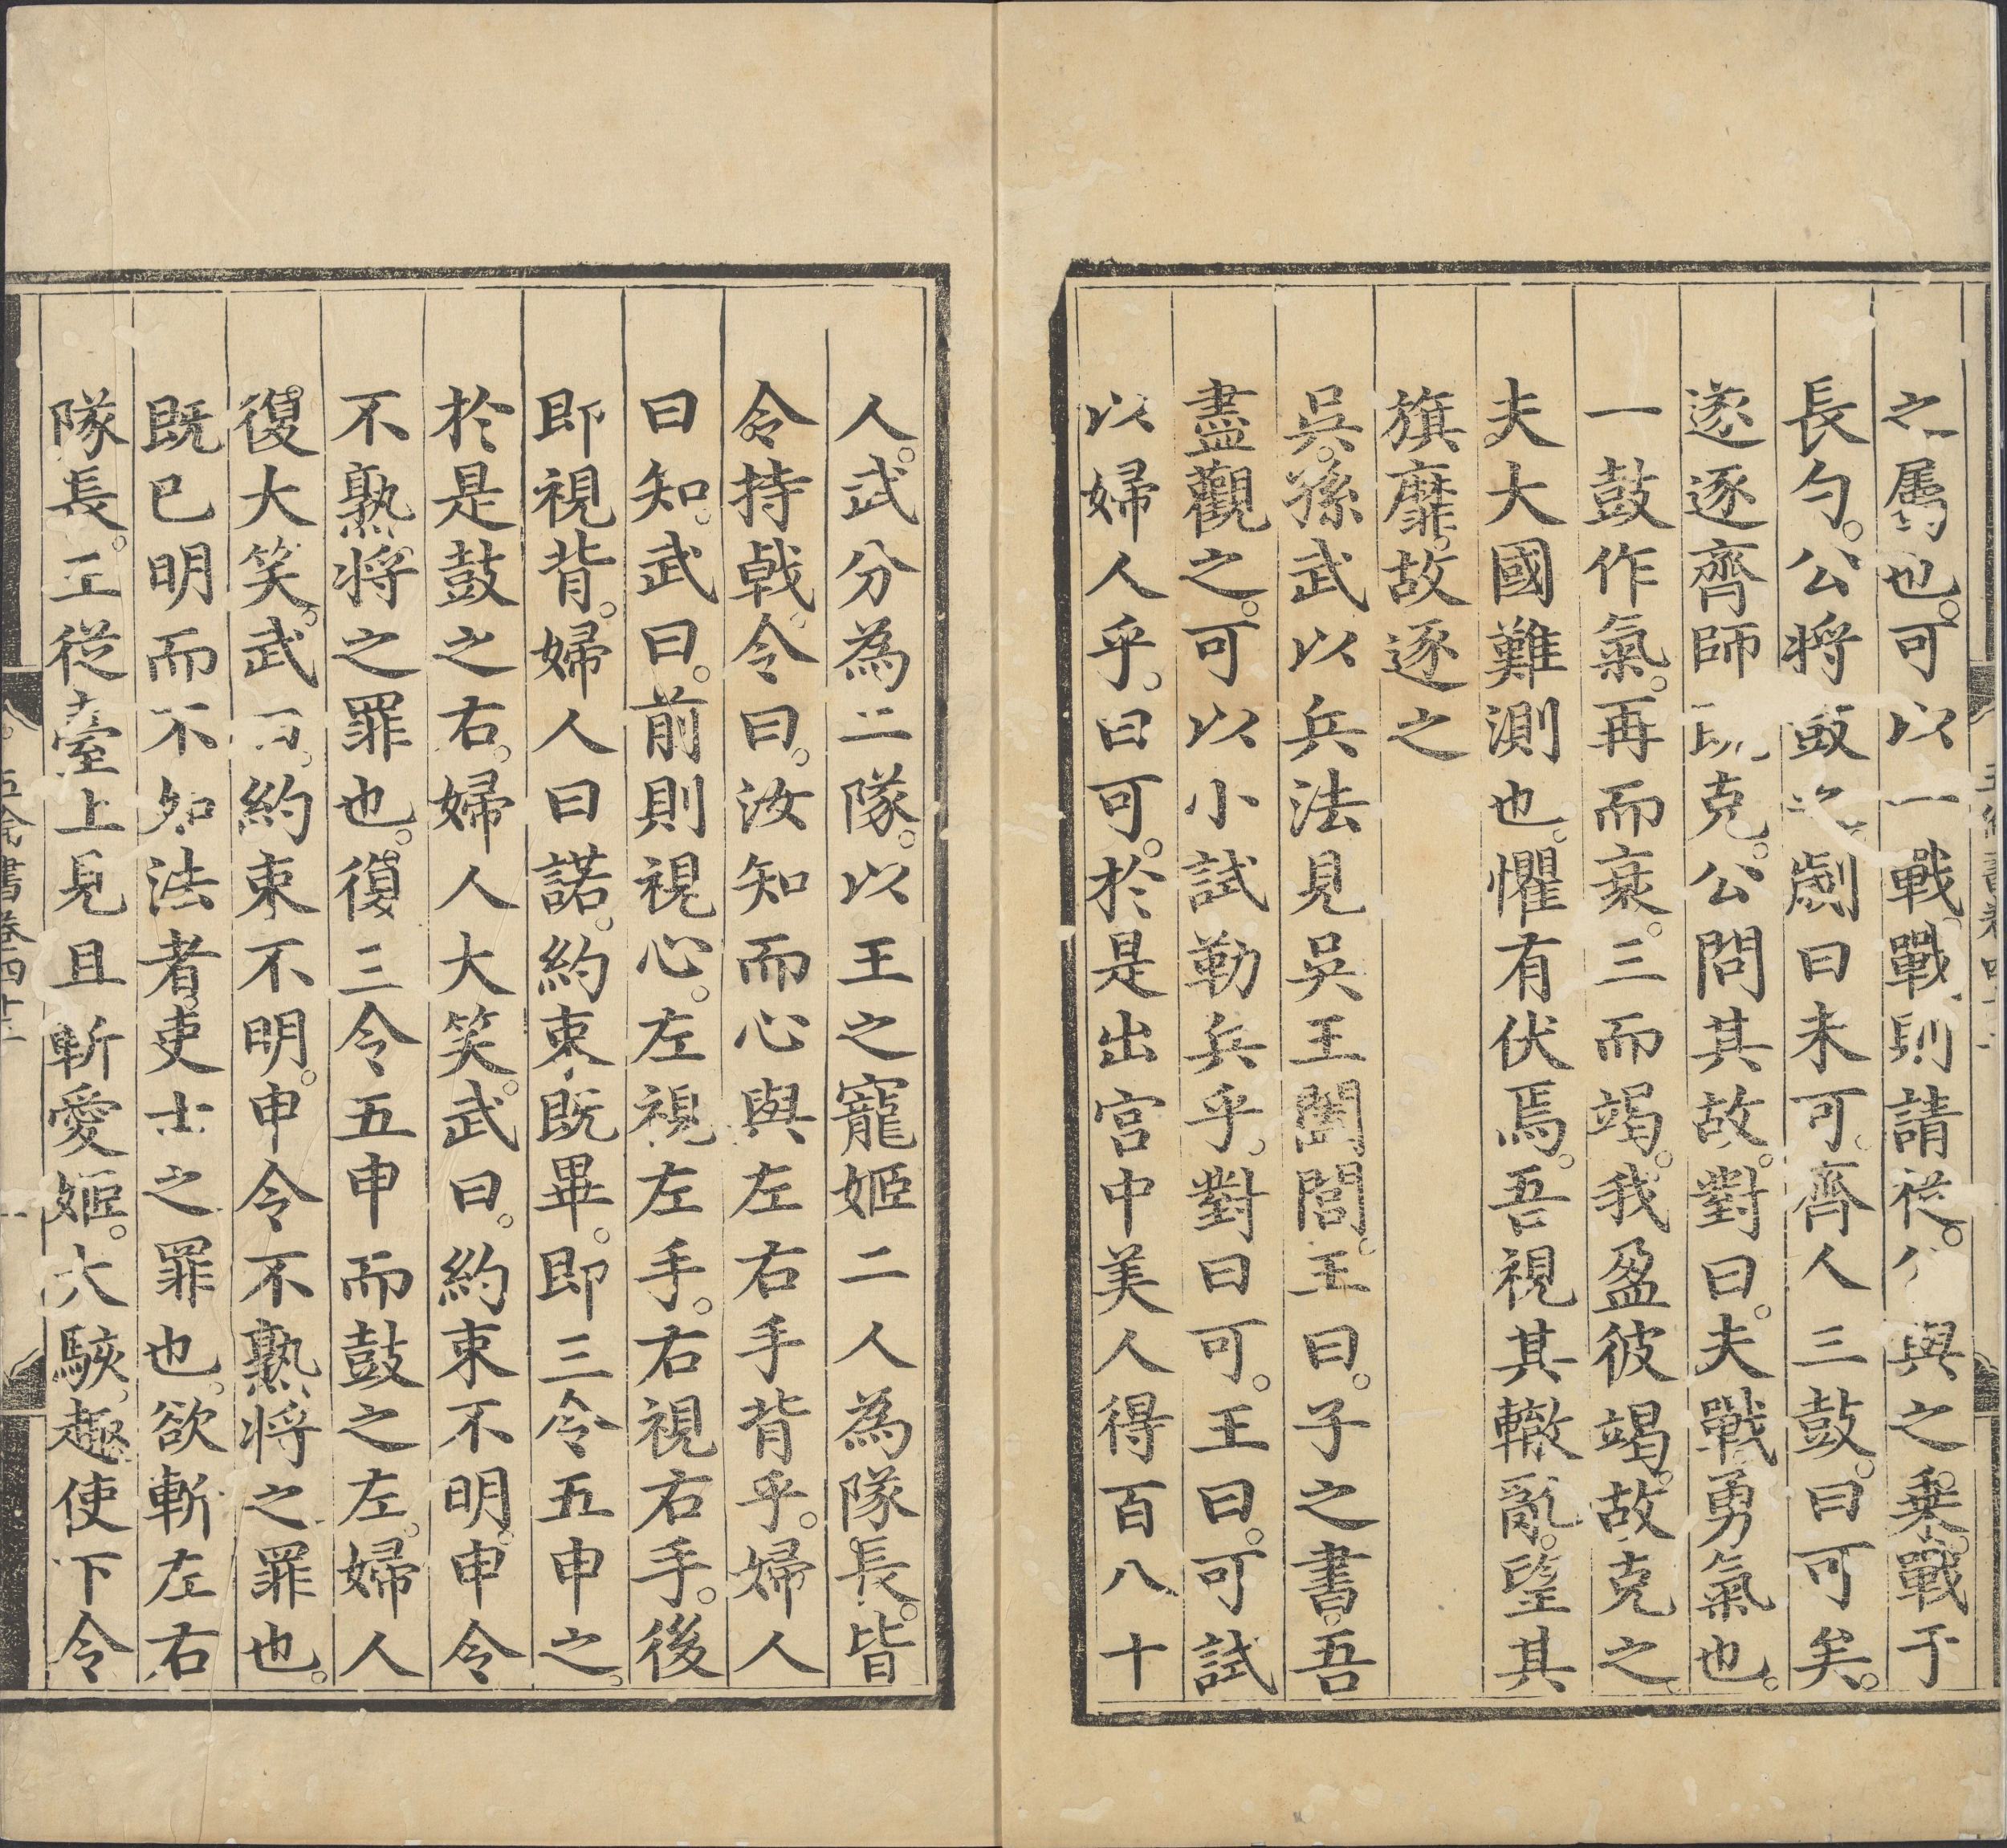 之属也。可以一戰。戰則請從。公與之乗。戰于
長勺。公将鼓之。劌曰未可。齊人三鼓。曰可矣。
遂逐齊師既克。公問其故。對曰。夫戰勇氣也。
一鼓作氣。再而衰。三而竭。我盈彼竭。故克之。
夫大國難測也。懼有伏焉。吾視其轍亂。望其
旗靡。故逐之
吳。孫武以兵法見吳王闔閭。王曰。子之書。吾
盡觀之。可以小試勒兵乎。對曰可。王曰。可試
以婦人乎。曰可。於是出宮中美人得百八十
人。武分為二隊。以王之寵姬二人為隊長。皆
令持戟。令曰。汝知而心與左右手背乎。婦人
曰知。武曰。前則視心。左視左手。右視右手。後
即視背。婦人曰諾。約束既畢。即三令五申之。
於是鼓之右。婦人大笑。武曰。約束不明。申令
不熟。将之罪也。復三令五申而鼓之左。婦人
復大笑。武曰。約束不明。申令不熟将之罪也。
既已明而不如法者。吏士之罪也。欲斬左右
隊長。王從臺上見且斬愛姬。大駭。趣使下令